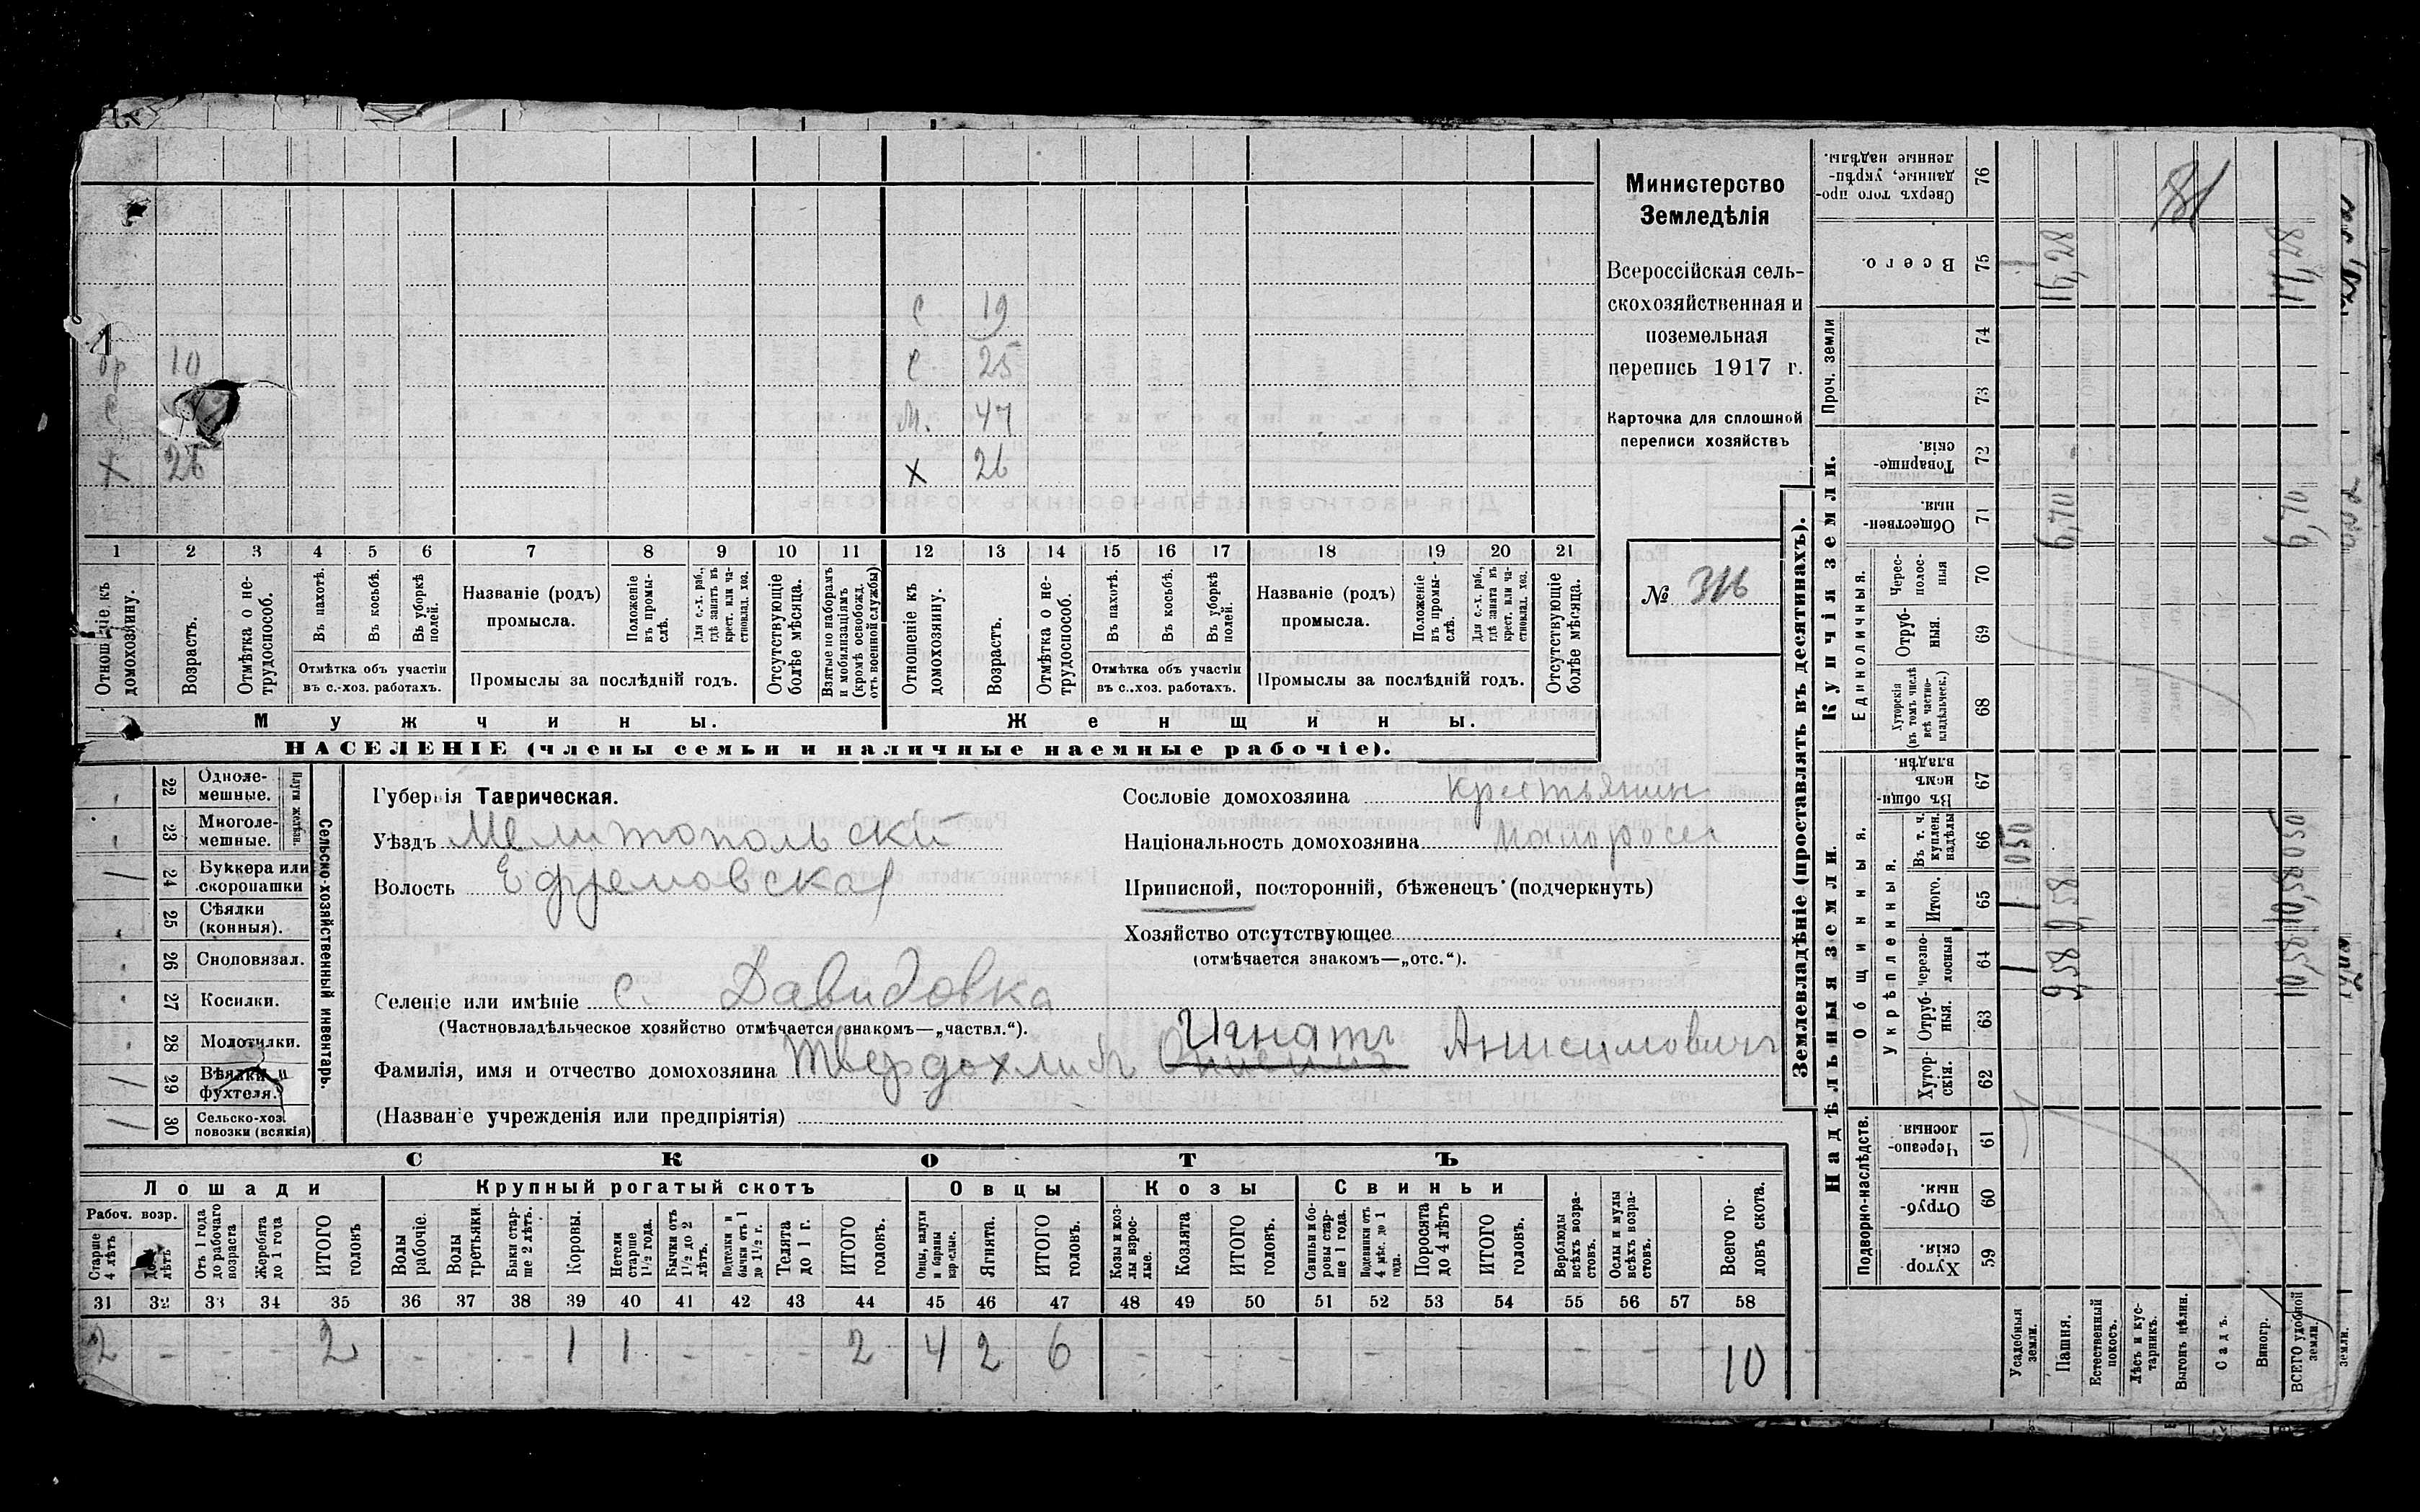 с 19
бр 10 с. 25
с м. 47
х 26 х 26
1 2 3 4 5 6 7 8 9 10 11 12 13 14 15 16 17 18 19 20 21
Отношеніе къ домохозяину.
Возрастъ.
Отмѣтка о нетрудоспособ.
Въ пахотѣ.
Въ косьбѣ.
Въ уборкѣ полей.
Отмѣтка объ участіи
въ с.-хоз. работахъ.
Названіе (родъ)
промысла.
Положеніе въ промыслѣ.
Для с.-х. раб., гдѣ занятъ въ крест. или частновлад. хоз.
Промыслы за послѣдній годъ.
Отсутствующіе болѣе мѣсяца.
Взятые по наборамъ и мобилизаціямъ (кромѣ освобожд. отъ военной службы)
Отношеніе къ домохозяину.
Возрастъ.
Отмѣтка о нетрудоспособ.
Въ пахотѣ.
Въ косьбѣ.
Въ уборкѣ полей.
Отмѣтка объ участіи
въ с..хоз. работахъ.
Названіе (родъ)
промысла.
Положеніе въ промыслѣ.
Для с.-х. раб., гдѣ занята въ крест. или частновлад. хоз.
Промыслы за послѣдній годъ.
Отсутствующіе болѣе мѣсяца.
Мужчины. Женщины.
НАСЕЛЕНІЕ (члены семьи и наличные наемные рабочіе).
Министерство
Земледѣлія
Всероссійская сель-
скохозяйственная и
поземельная
перепись 1917 г.
Карточка для сплошной
переписи хозяйствъ
№ 316
Сельско-хозяйственный инвентарь.
Плуги желѣзн.
22 Одноле-
мешные.
23 Многоле-
мешные.
24 Буккера или
скоропашки
25 Сѣялки
(конныя).
26 Сноповязал.
27 Косилки.
28 Молотилки.
29 Вѣялки и
фухтеля.
30 Сельско-хоз.
повозки (всякія)
Губернія Таврическая.
Уѣздъ Мелитопольский
Волость Ефремовская
Селеніе или имѣніе с. Давидовка
(Частновладѣльческое хозяйство отмѣчается знакомъ—„частвл.“).
Игнатъ
Фамилія, имя и отчество домохозяина Твердохлибъ Анисимовичъ
(Названіе учрежденія или предпріятія)
Сословіе домохозяина Крестьянин
Національность домохозяина Малоросс
Приписной, посторонній, бѣженецъ (подчеркнуть)
Хозяйство отсутствующее
(отмѣчается знакомъ—„отс.“).
СКОТЪ
Лошади Крупный рогатый скотъ Овцы Козы Свиньи
Рабоч. возр.
Старше 4 лѣтъ
лѣтъ
Отъ 1 года до рабочаго возраста
Жеребята до 1 года
ИТОГО головъ
Волы рабочіе.
Волы третьяки.
Быки старше 2 лѣтъ.
Коровы.
Нетели старше 1½ года.
Бычки отъ 1½ до 2 лѣтъ.
Подтелки и бычки отъ 1 до 1½ г.
Телята до 1 г.
ИТОГО головъ.
Овцы, валухи и бараны взрослые.
Ягнята.
ИТОГО головъ.
Козы и козлы взрослые.
Козлята
ИТОГО головъ.
Свиньи и боровы старше 1 года.
Подсвинки отъ 4 мѣс. до 1 года.
Поросята до 4 лѣтъ
ИТОГО головъ.
Верблюды всѣхъ возрастовъ.
Ослы и мулы всѣхъ возрастовъ.
Всего головъ скота.
31 32 33 34 35 36 37 38 39 40 41 42 43 44 45 46 47 48 49 50 51 52 53 54 55 56 57 58
2 - - - 2 - - - 1 1 - - - 2 4 2 6 - - - - - - - - - 10
Землевладѣніе (проставлять въ десятинахъ).
Купчія земли.
Проч. земли
Единоличныя.
Надѣльныя земли.
Общинныя.
Укрѣпленныя.
Подворно-наслѣдств.
Сверхъ того проданные, укрѣпленные надѣлы. 76
Всего. 75 16,78 17,28
74
73
Товарищескія. 72
Общественныя. 71 6,70 6,70
Чересполосныя 70
Отрубныя. 69
Хуторскія (въ томъ числѣ всѣ частновладѣльческ.) 68
Въ общинномъ владѣн. 67
Въ т. ч. куплен. надѣлы 66 050 050
Итого. 65 10,58
Черезполосныя 64 9,58 10,58
Отрубныя. 63
Хуторскія. 62
Черезполосныя 61
Отрубныя. 60
Хуторскія. 59
Усадебныя земли.
Пашня.
Естественный покосъ.
Лѣсъ и кустарникъ.
Выгонъ цѣлин.
Садъ.
Виногр.
ВСЕГО удобной земли.
земли.